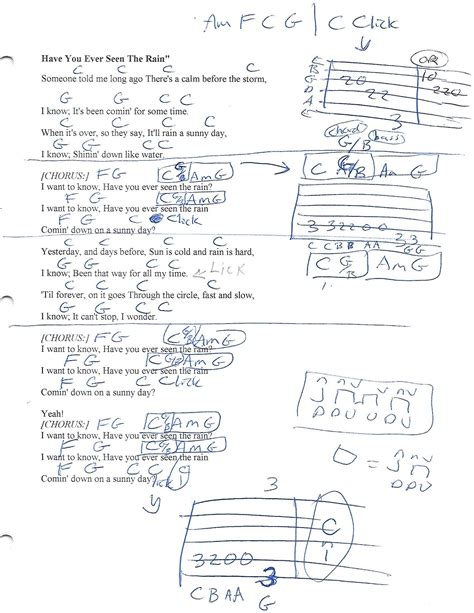 Am F C G | C Click
Have You Ever Seen The Rain"
C C C C
Someone told me long ago There's a calm before the storm,
G G C C
I know; It's been comin' for some time.
C C C C
When it's over, so they say, It'll rain a sunny day,
G G C C
I know; Shinin' down like water.
[CHORUS:] F G C G/B Am G
I want to know, Have you ever seen the rain?
F G C G/B Am G
I want to know, Have you ever seen the rain
F G C Click
Comin' down on a sunny day?
C C C C
Yesterday, and days before, Sun is cold and rain is hard,
G G C C ← Lick
I know; Been that way for all my time.
C C C C
'Til forever, on it goes Through the circle, fast and slow,
G G C C
I know; It can't stop, I wonder.
[CHORUS:] F G C G/B Am G
I want to know, Have you ever seen the rain?
F G C G/B Am G
I want to know, Have you ever seen the rain
F G C Click
Comin' down on a sunny day?
Yeah!
[CHORUS:] F G C G/B Am G
I want to know, Have you ever seen the rain?
F G C G/B Am G
I want to know, Have you ever seen the rain
F G C C C
Comin' down on a sunny day?
OR
B
G 20 10
D 22 220
A
3
chord bass
G/B
C G/B Am G
3 3 2 2 0 0 3 3
C C B B A A G G
C G/B Am G
D D U U D U
D =
D D U
3
3 2 0 0 3 C
C B A A G 1